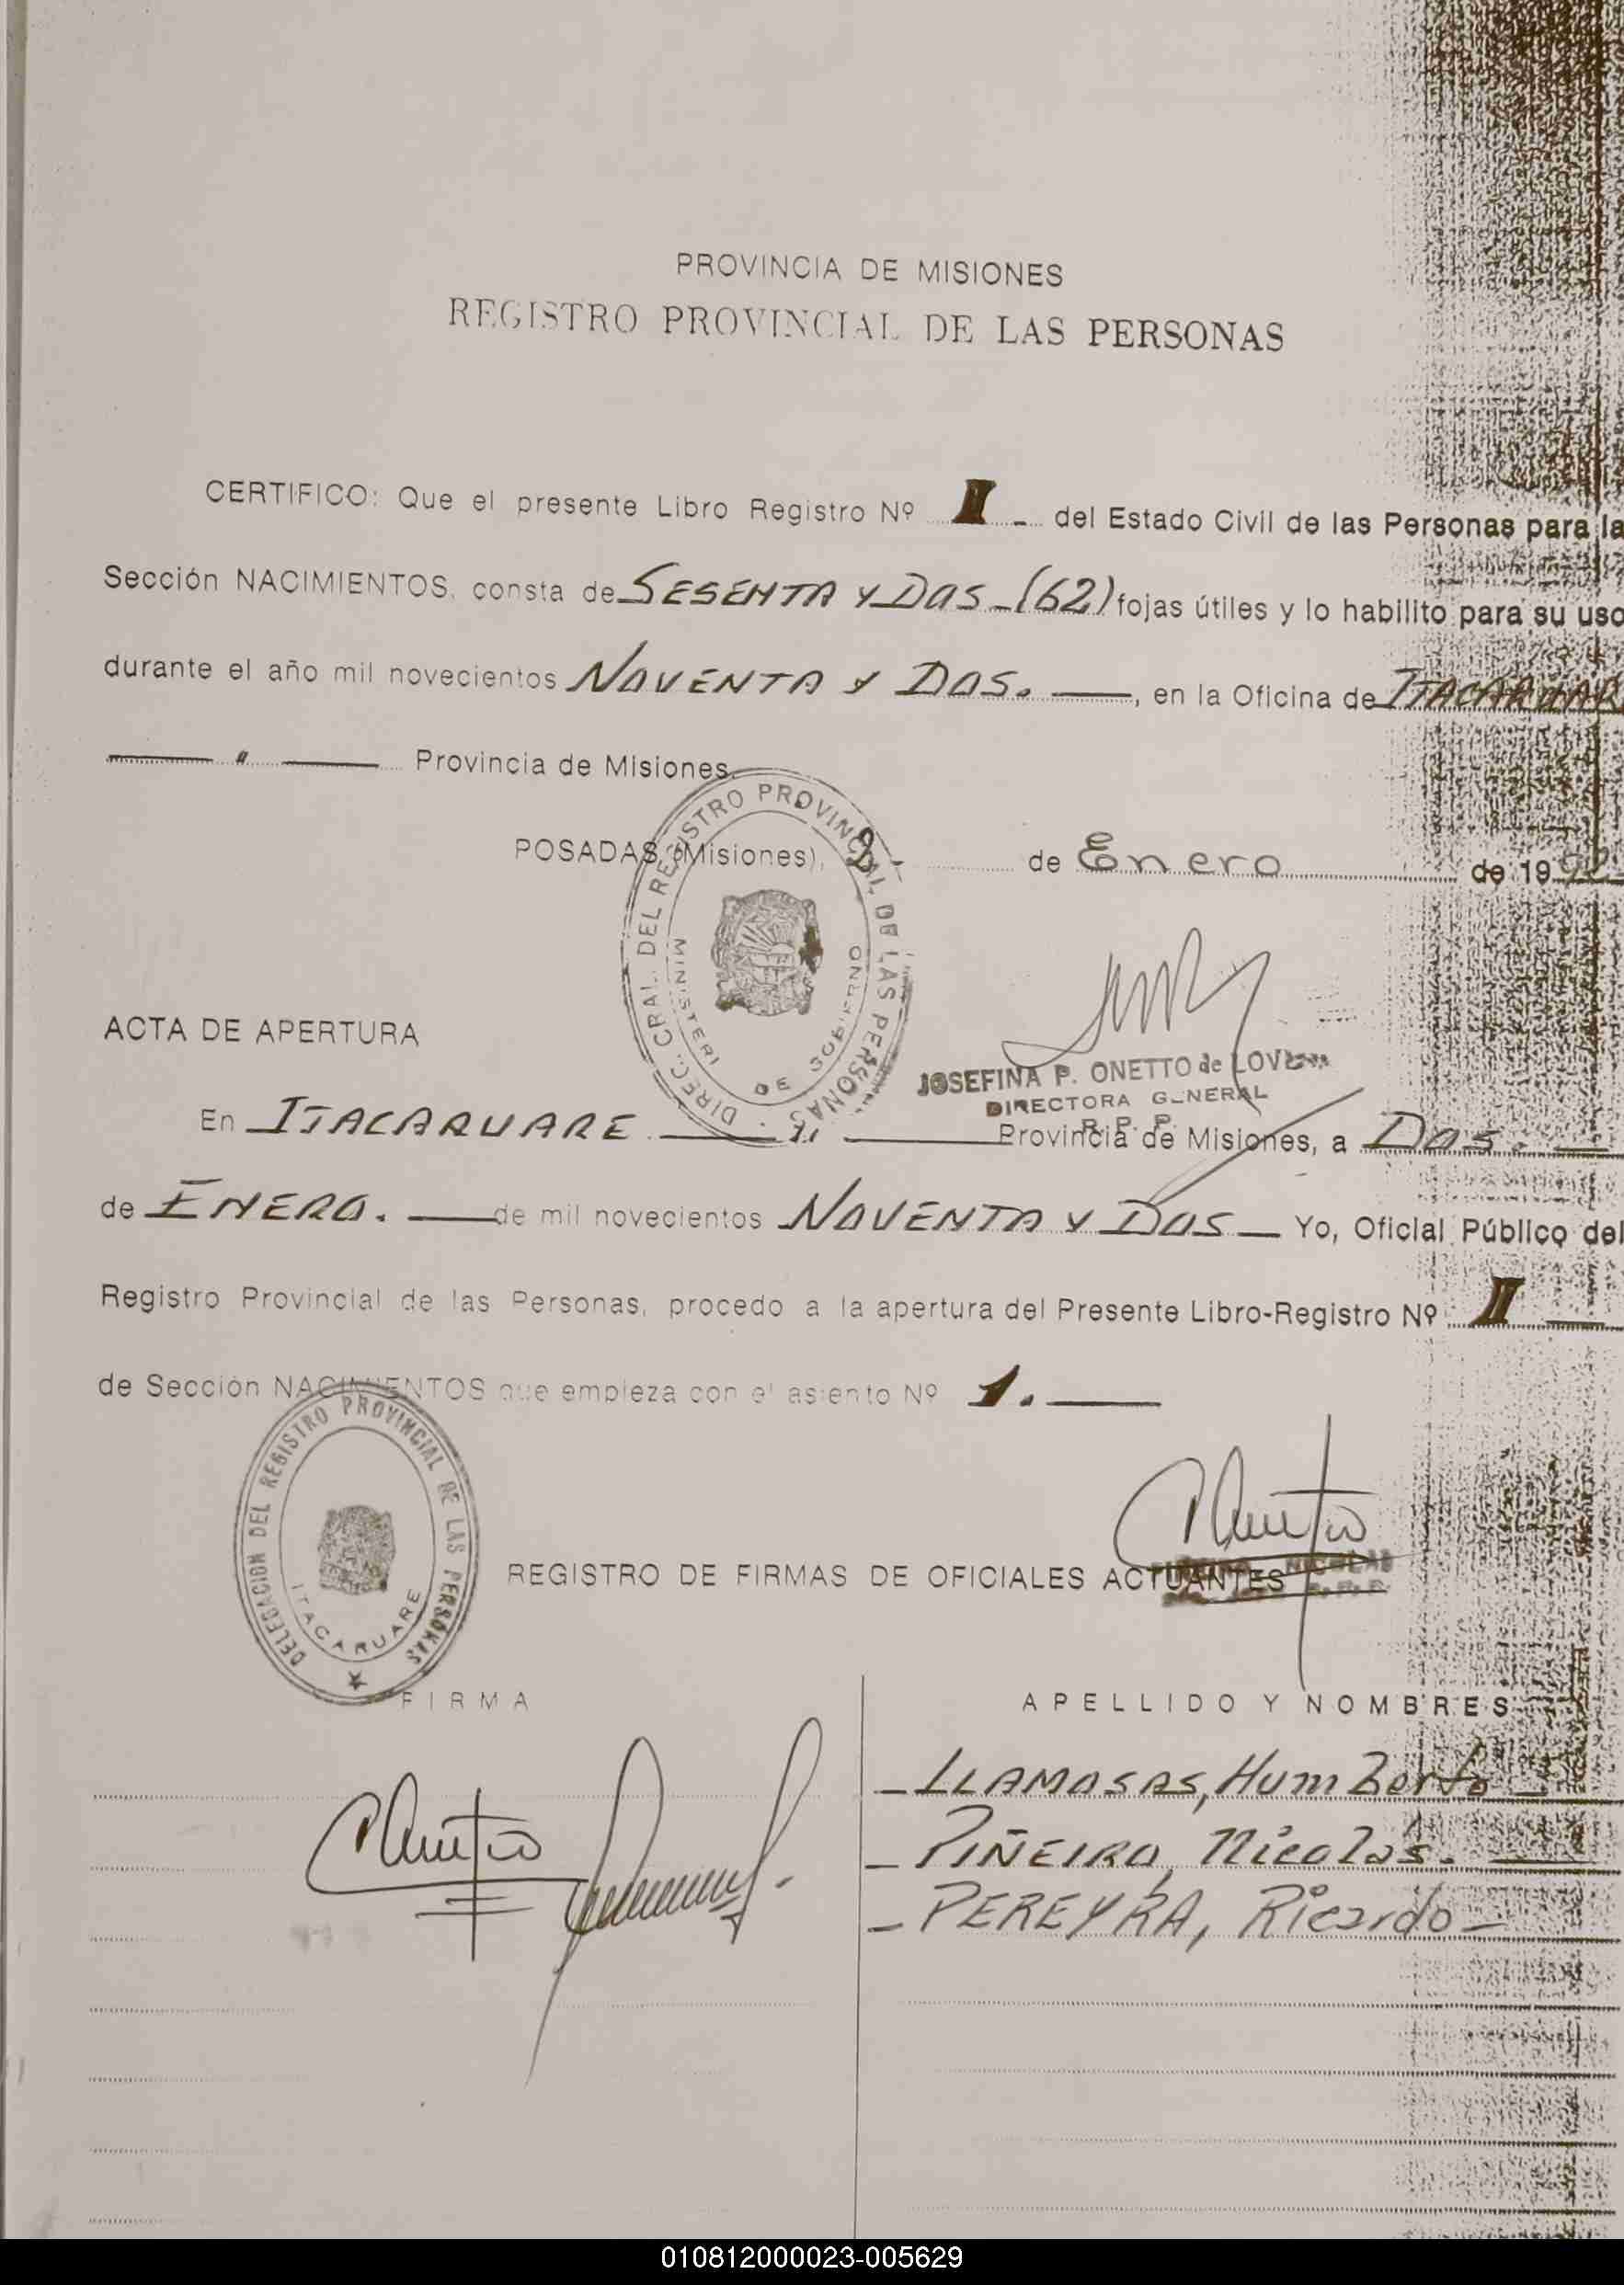 PROVINCIA DE MISIONES
REGISTRO PROVINCIAL DE LAS PERSONAS
CERTIFICO: Que el presente Libro Registro Nº I - del Estado Civil de las Personas para la
Sección NACIMIENTOS, consta de SESENTA Y DOS - (62) fojas útiles y lo habilito para su uso
durante el año mil novecientos NOVENTA Y DOS. —, en la Oficina de ITACARUAR
— " — Provincia de Misiones.
POSADAS, (Misiones), 2 - de Enero de 1992
DIREC. GRAL. DEL REGISTRO PROVINCIAL DE LAS PERSONAS
MINISTERI DE GOBIERNO
ACTA DE APERTURA
JOSEFINA P. ONETTO de
DIRECTORA GENERAL
R. P. P.
En ITACARUARE — " — Provincia de Misiones, a DOS. —
de ENERO. — de mil novecientos NOVENTA Y DOS — Yo, Oficial Público del
Registro Provincial de las Personas, procedo a la apertura del Presente Libro-Registro Nº I —
de Sección NACIMIENTOS que empieza con el asiento Nº 1. —
DELEGACION DEL REGISTRO PROVINCIAL DE LAS PERSONAS
ITACARUARE
NICOLAS
REGISTRO DE FIRMAS DE OFICIALES ACTUANTES
FIRMA APELLIDO Y NOMBRES
- LLAMOSAS, Humberto -
- PIÑEIRO, Nicolás. —
- PEREYRA, Ricardo -
010812000023-005629